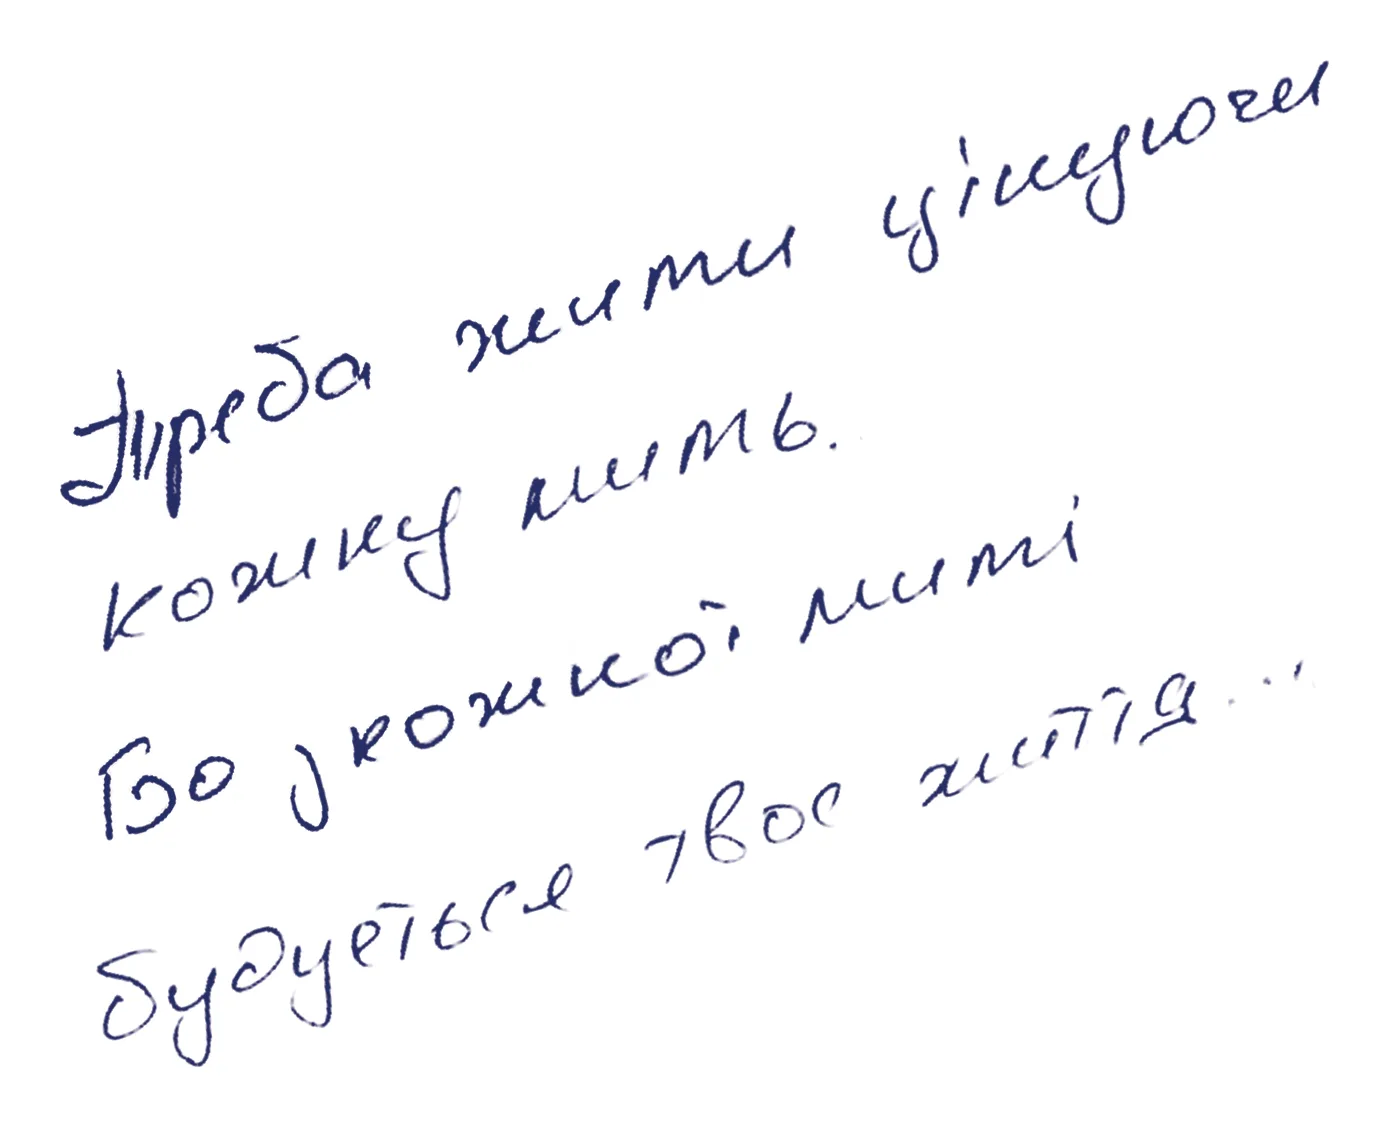 Треба жити цінуючи
кожну мить.
Бо у кожної миті
будується твоє життя...